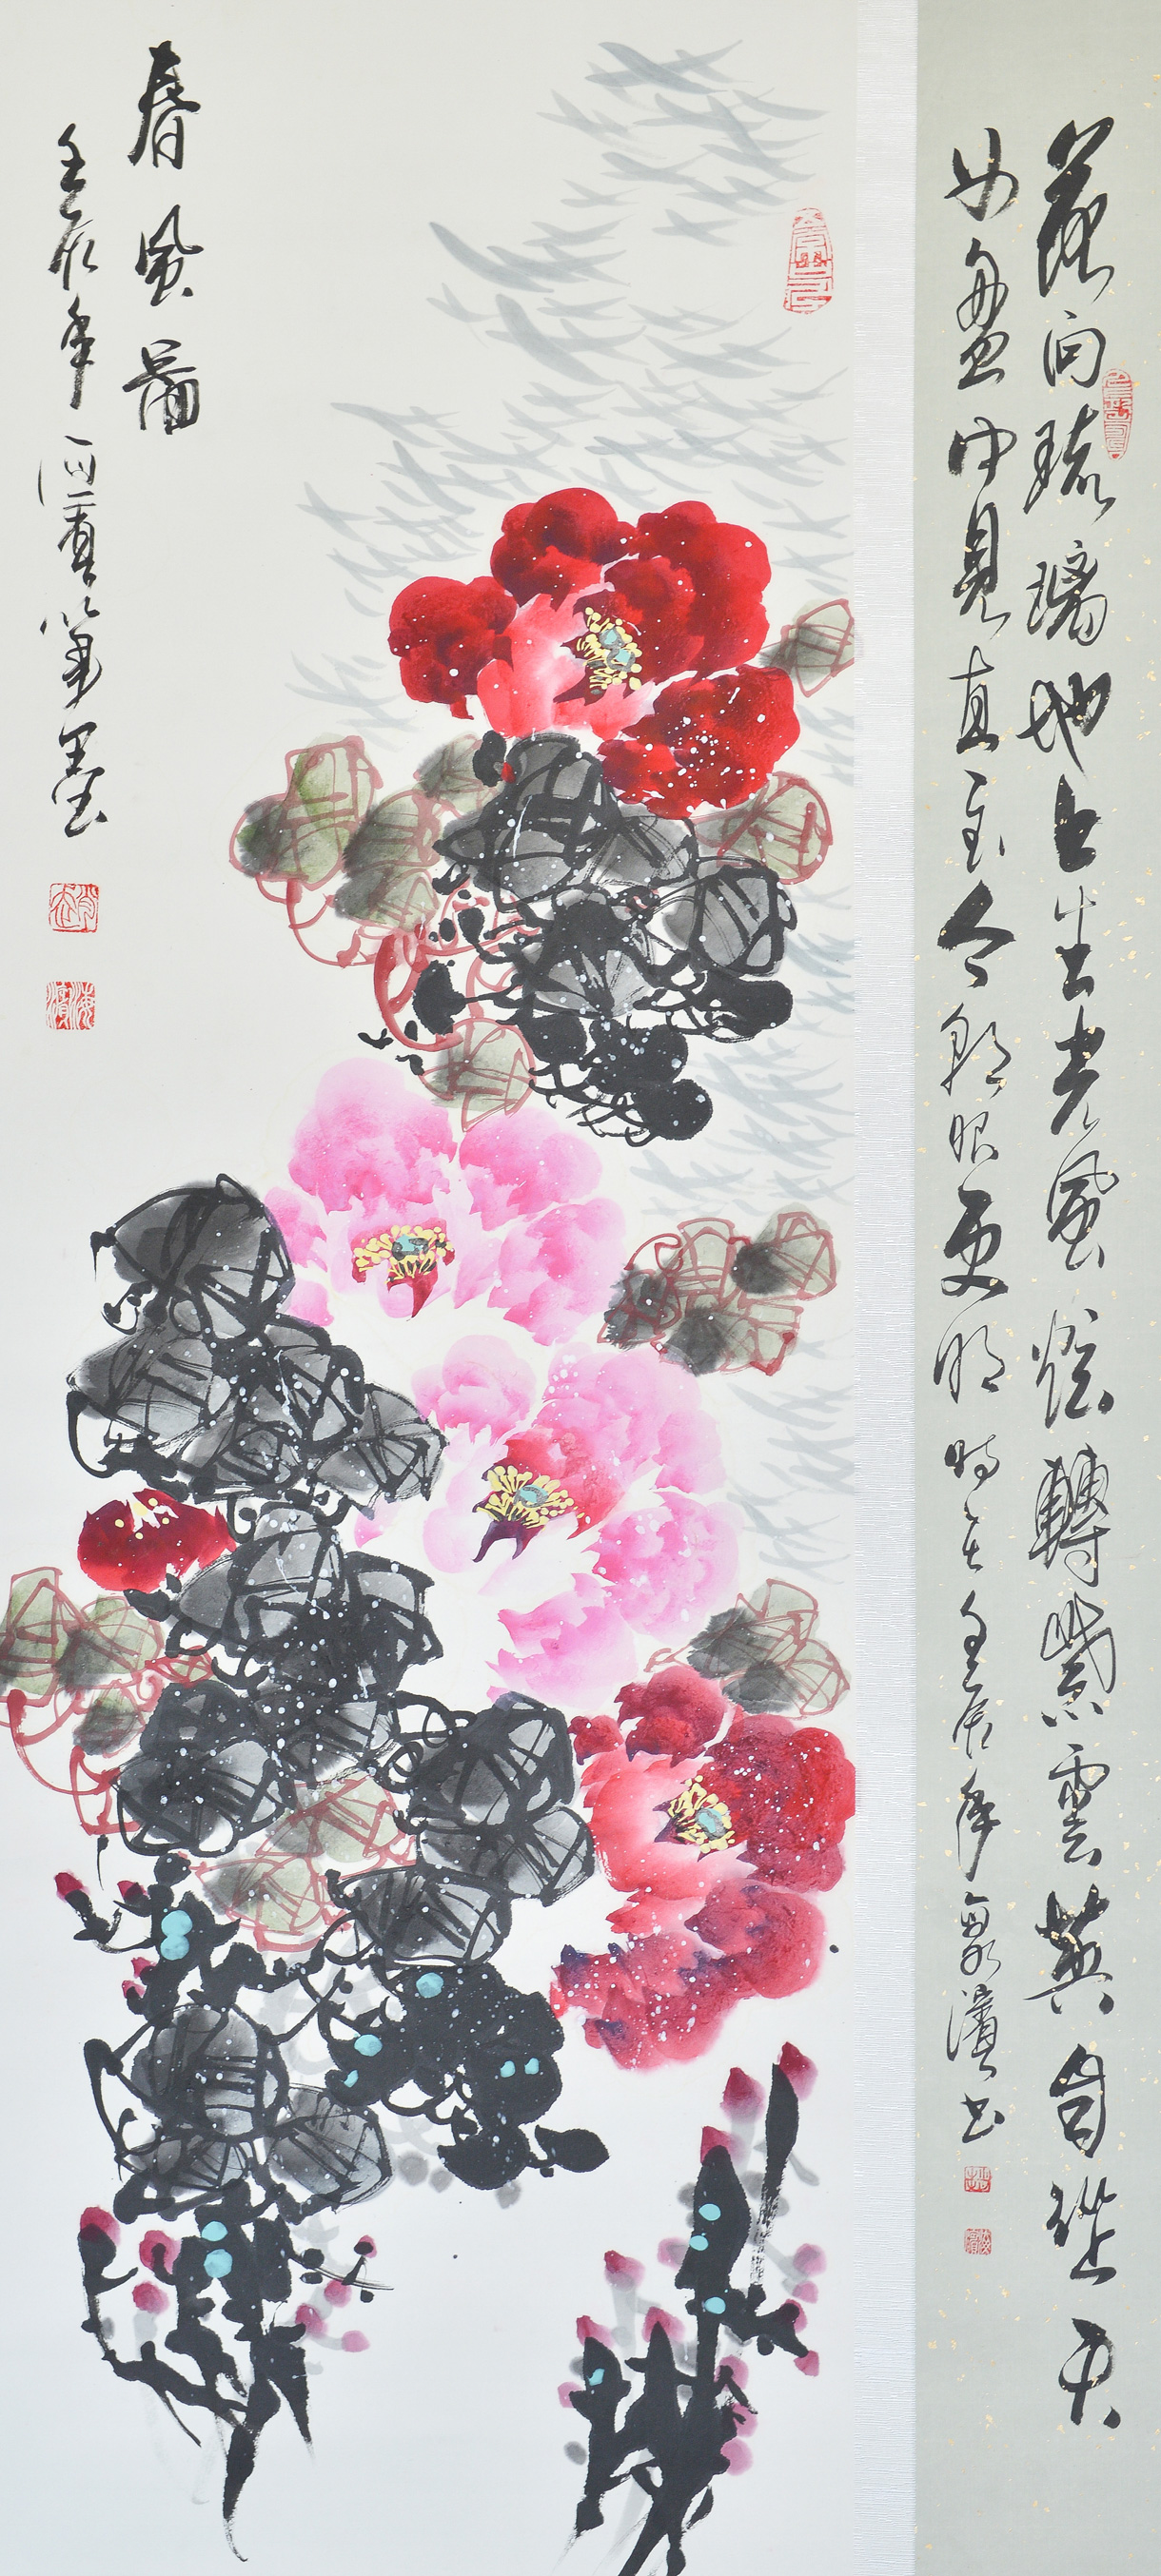 向琉璃地上生光風炫轉紫雲英自從天
女盘中見直至今朝眼更明時在壬辰年濱書
春風圖
壬辰年濱筆墨
海濱